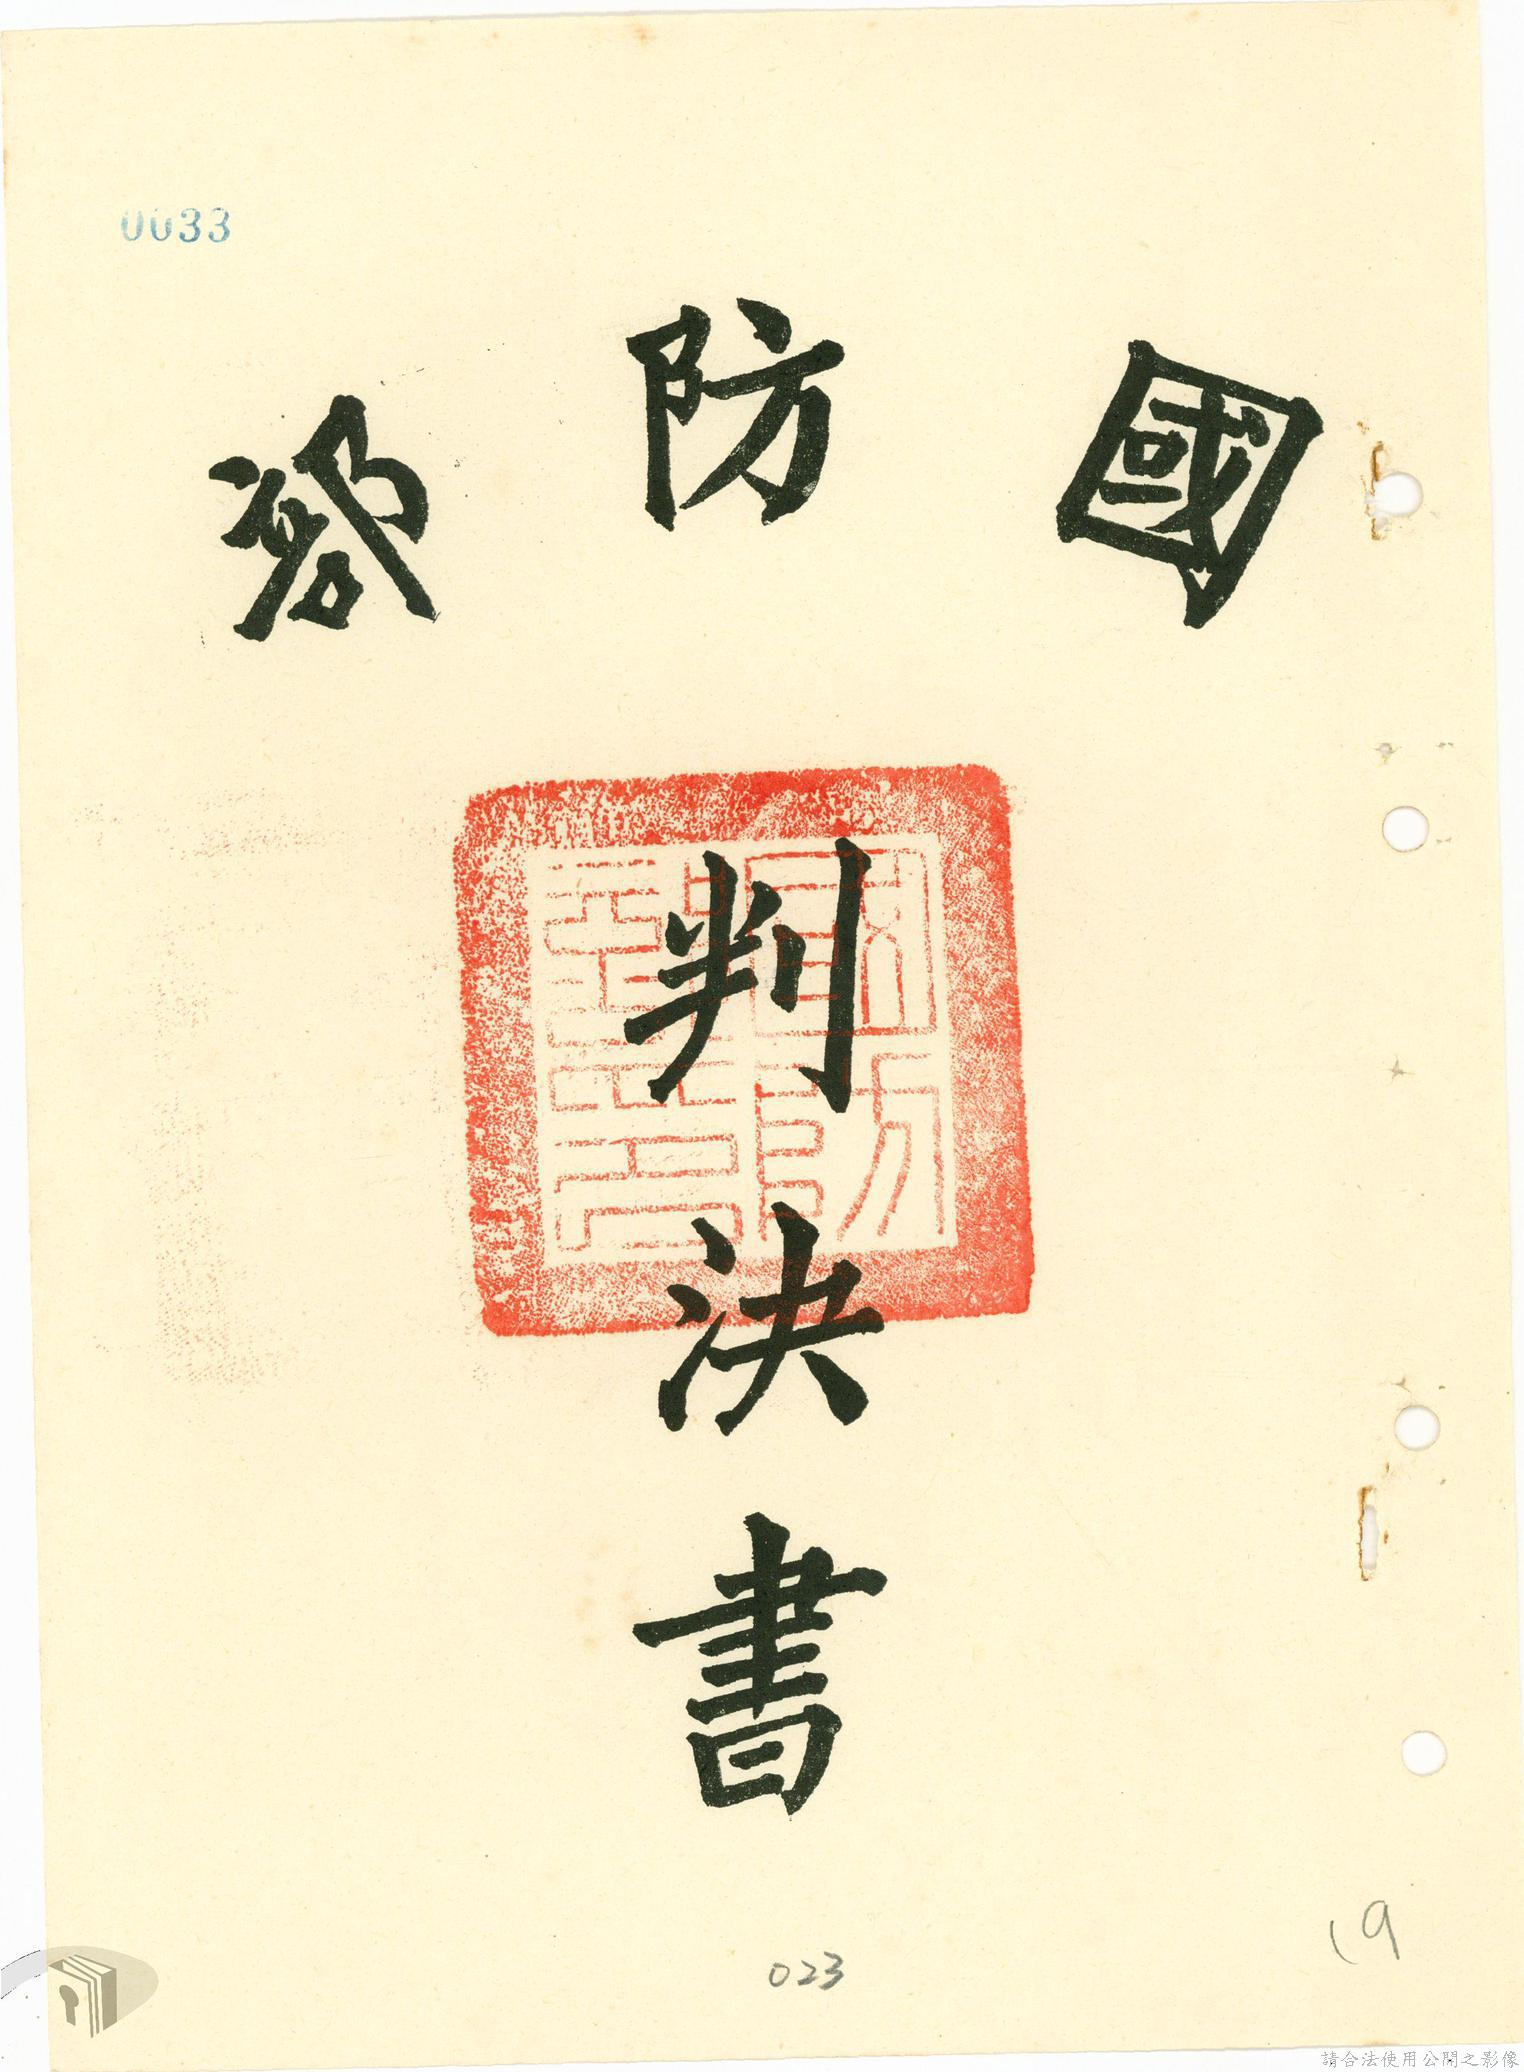 0033
國防部
判決書
023
19
請合法使用公開之影像